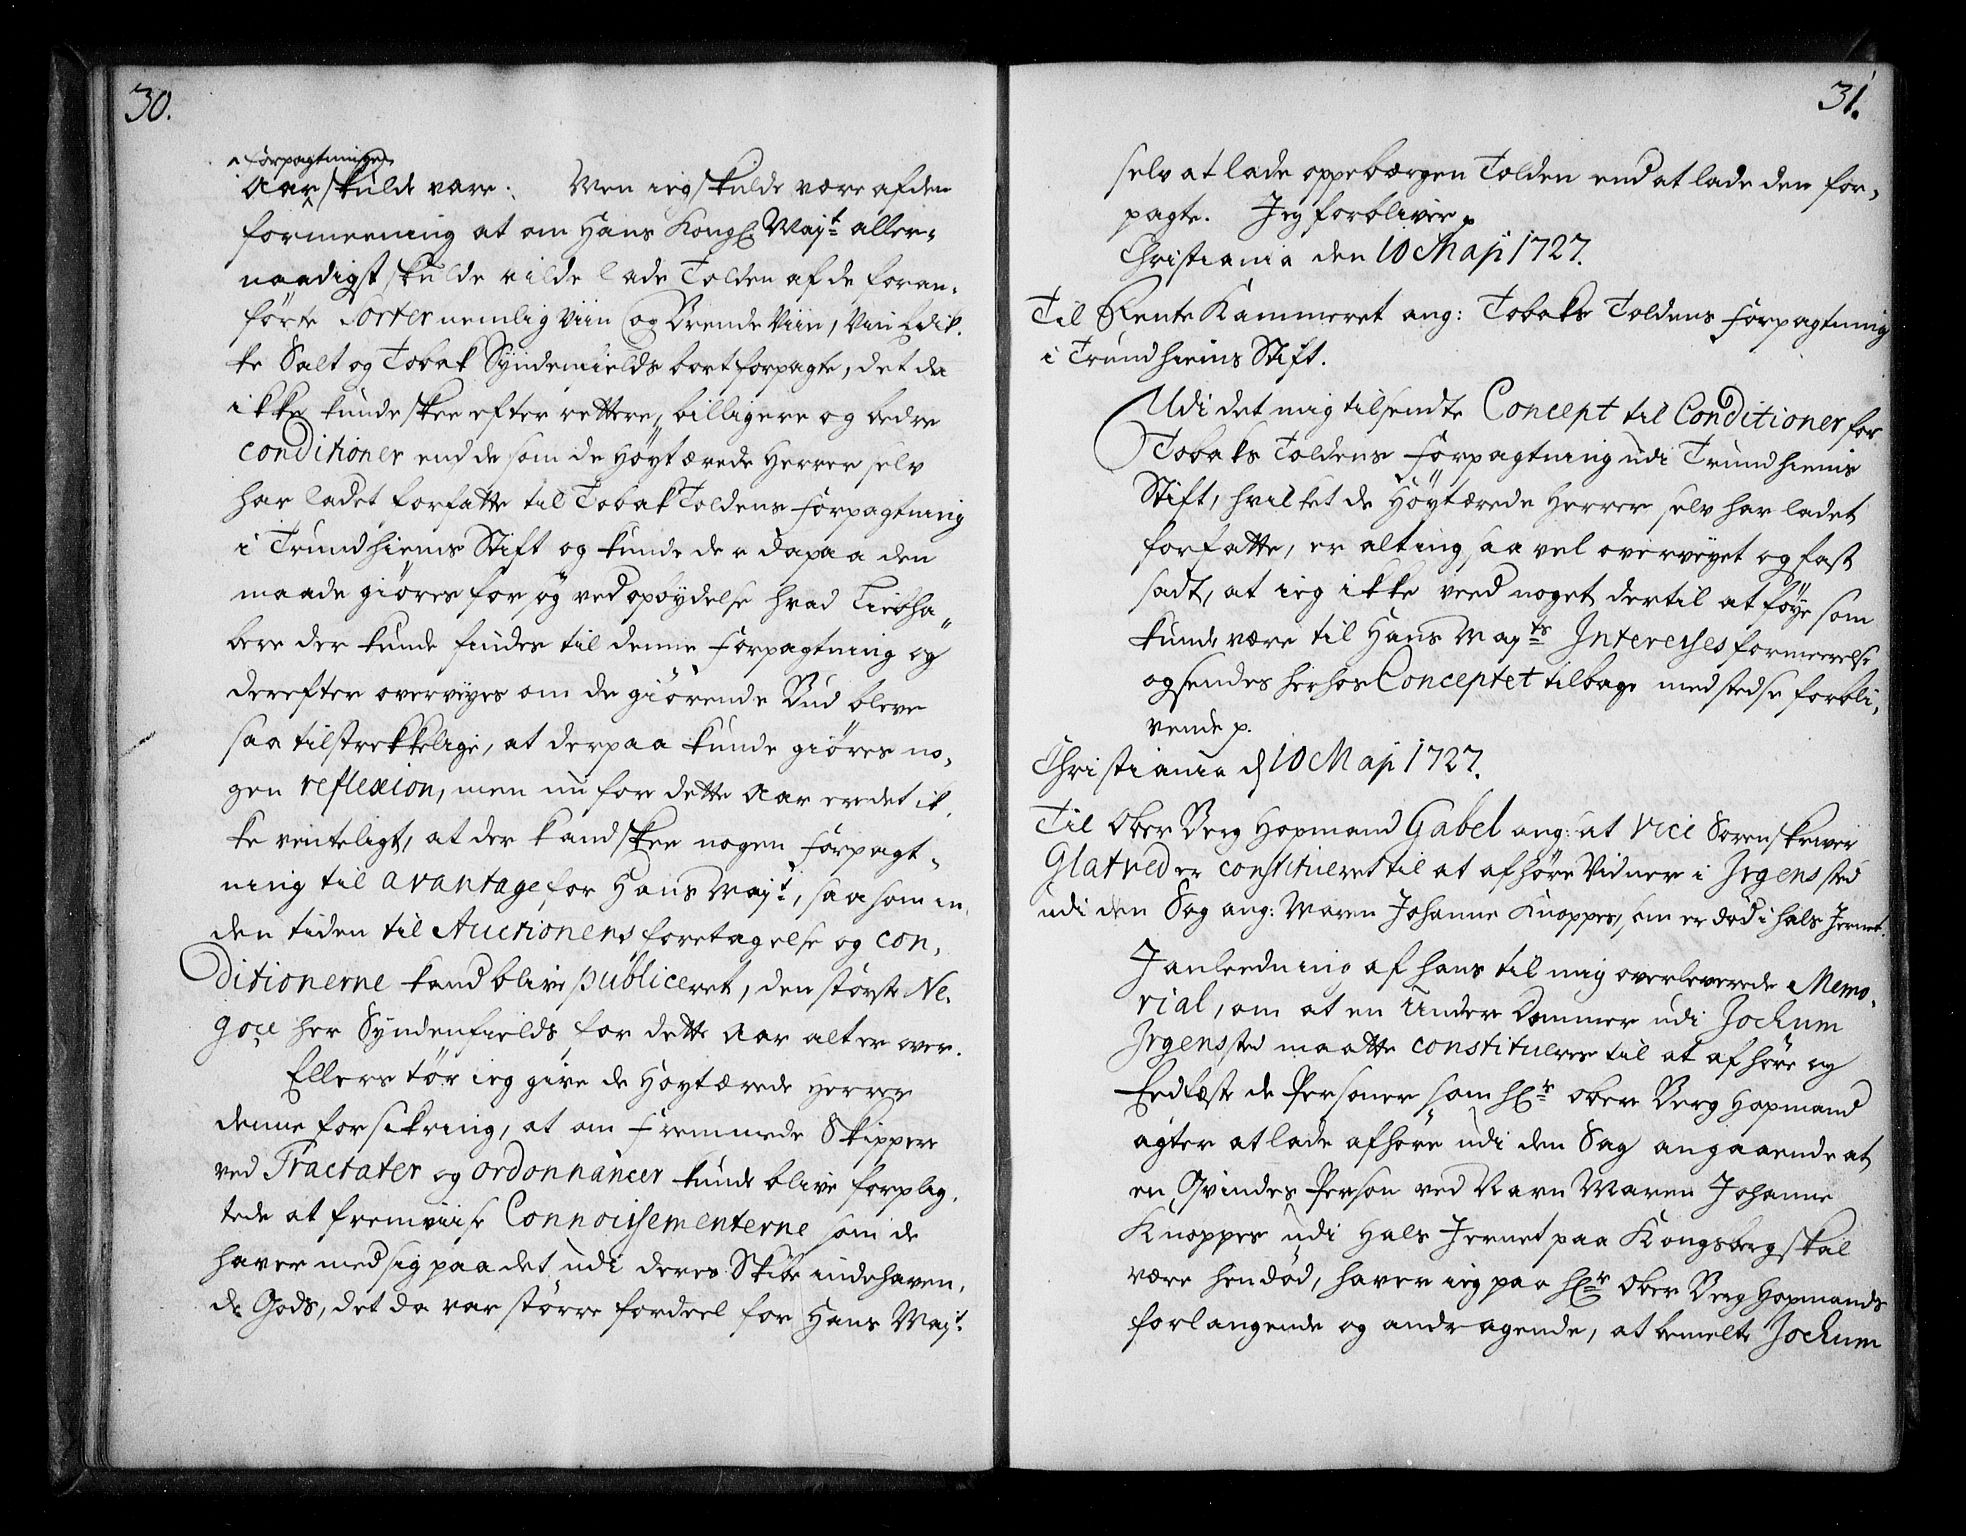 30.
forpagtningen
Aar skulde være: Men ieg skulde være af den
formeening at om Hans Kongl Majt aller-
naadigst skulde vilde lade Tolden af de foran-
førte Sorter nemlig Viin og Brende Viin, Viin Edik-
ke Salt og Tobak Syndenfields bortforpagte, det da
ikke kunde skee efter rettere, billigere og bedre
conditioner end de som de Høytærede Herrer selv
har ladet forfatte til Tobak Toldens forpagtning
i Trundhiems Stift og kunde der da paa den
maade giøres forsøg ved opbydelse hvad Liebha-
bere der kunde findes til denne forpagtning og
derefter overveyes om de giørende Bud bleve
saa tilstrekkelige, at derpaa kunde giøres no-
gen reflexion, men nu for dette Aar er det ik-
ke venteligt, at der kand skee nogen forpagt-
ning til avantage for Hans Majt, saasom in-
den tiden til Auctionens foretagelse og con-
ditionerne kand blive publiceret, den største Ne-
goce her Syndenfields for dette Aar alt er over.
Ellers tør ieg give de Høytærede Herrer
denne forsikring, at om fremmede Skippere
ved Tractater og ordonnancer kunde blive forplig-
tede at fremviise Connoissementerne som de
haver med sig paa det udi deres Skibe indehaven-
de Gods, det da var større fordeel for Hans Majt
31.
selv at lade oppebærgen Tolden end at lade den for-
pagte. Jeg forbliver p
Christiania den 10 Maji 1727.
Til Rente Kammeret ang: Tobaks Toldens forpagtning
i Trundhiems Stift.
Udi det mig tilsendte Concept til Conditioner for
Tobaks Toldens forpagtning udi Trundhiems
Stift, hvilket de Høytærede Herrer selv har ladet
forfatte, er alting saa vel overveyet og fast
sadt, at ieg ikke veed noget dertil at føye som
kunde være til Hans Majts Interesses formeerelse
og sendes herhos Conceptet tilbage med stedse forbli-
vende p.
Christiania d 10 Maji 1727.
Til Ober Berg Hopmand Gabel ang: at vice Sorenskriver
Glatved er constitueret til at afhøre Vidner i Jrgens sted
udi den Sag ang: Maren Johanne Knoppes, som er død i hals Jernet.
I anleedning af hans til mig overleverede Memo-
rial, om at en Under Dommer udi Jochum
Jrgens sted maatte constitueres til at afhøre og
Eedfæste de Personer som Hr Ober Berg Hopmand
agter at lade afhøre udi den Sag angaaende at
en Qvindes Person ved Navn Maren Johanne
Knoppes udi Hals Jernet paa Kongsberg skal
være hendød, haver ieg paa Hr Ober Berg Hopmands
forlangende og andragende, at bemelte Jochum